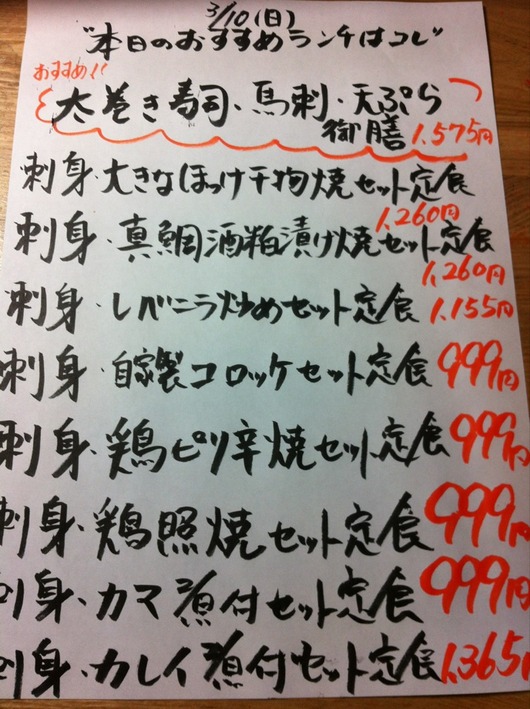 3/10(日)
"本日のおすすめランチはコレ"
おすすめ!!
太巻き寿司、馬刺、天ぷら
御膳 1,575円
刺身・大きなほっけ干物焼セット定食
1,260円
刺身・真鯛酒粕漬け焼セット定食
1,260円
刺身・レバニラ炒めセット定食 1,155円
刺身・自家製コロッケセット定食 999円
刺身・鶏ピリ辛焼セット定食 999円
刺身・鶏照焼セット定食 999円
刺身・カマ煮付セット定食 999円
刺身・カレイ煮付セット定食 1,365円